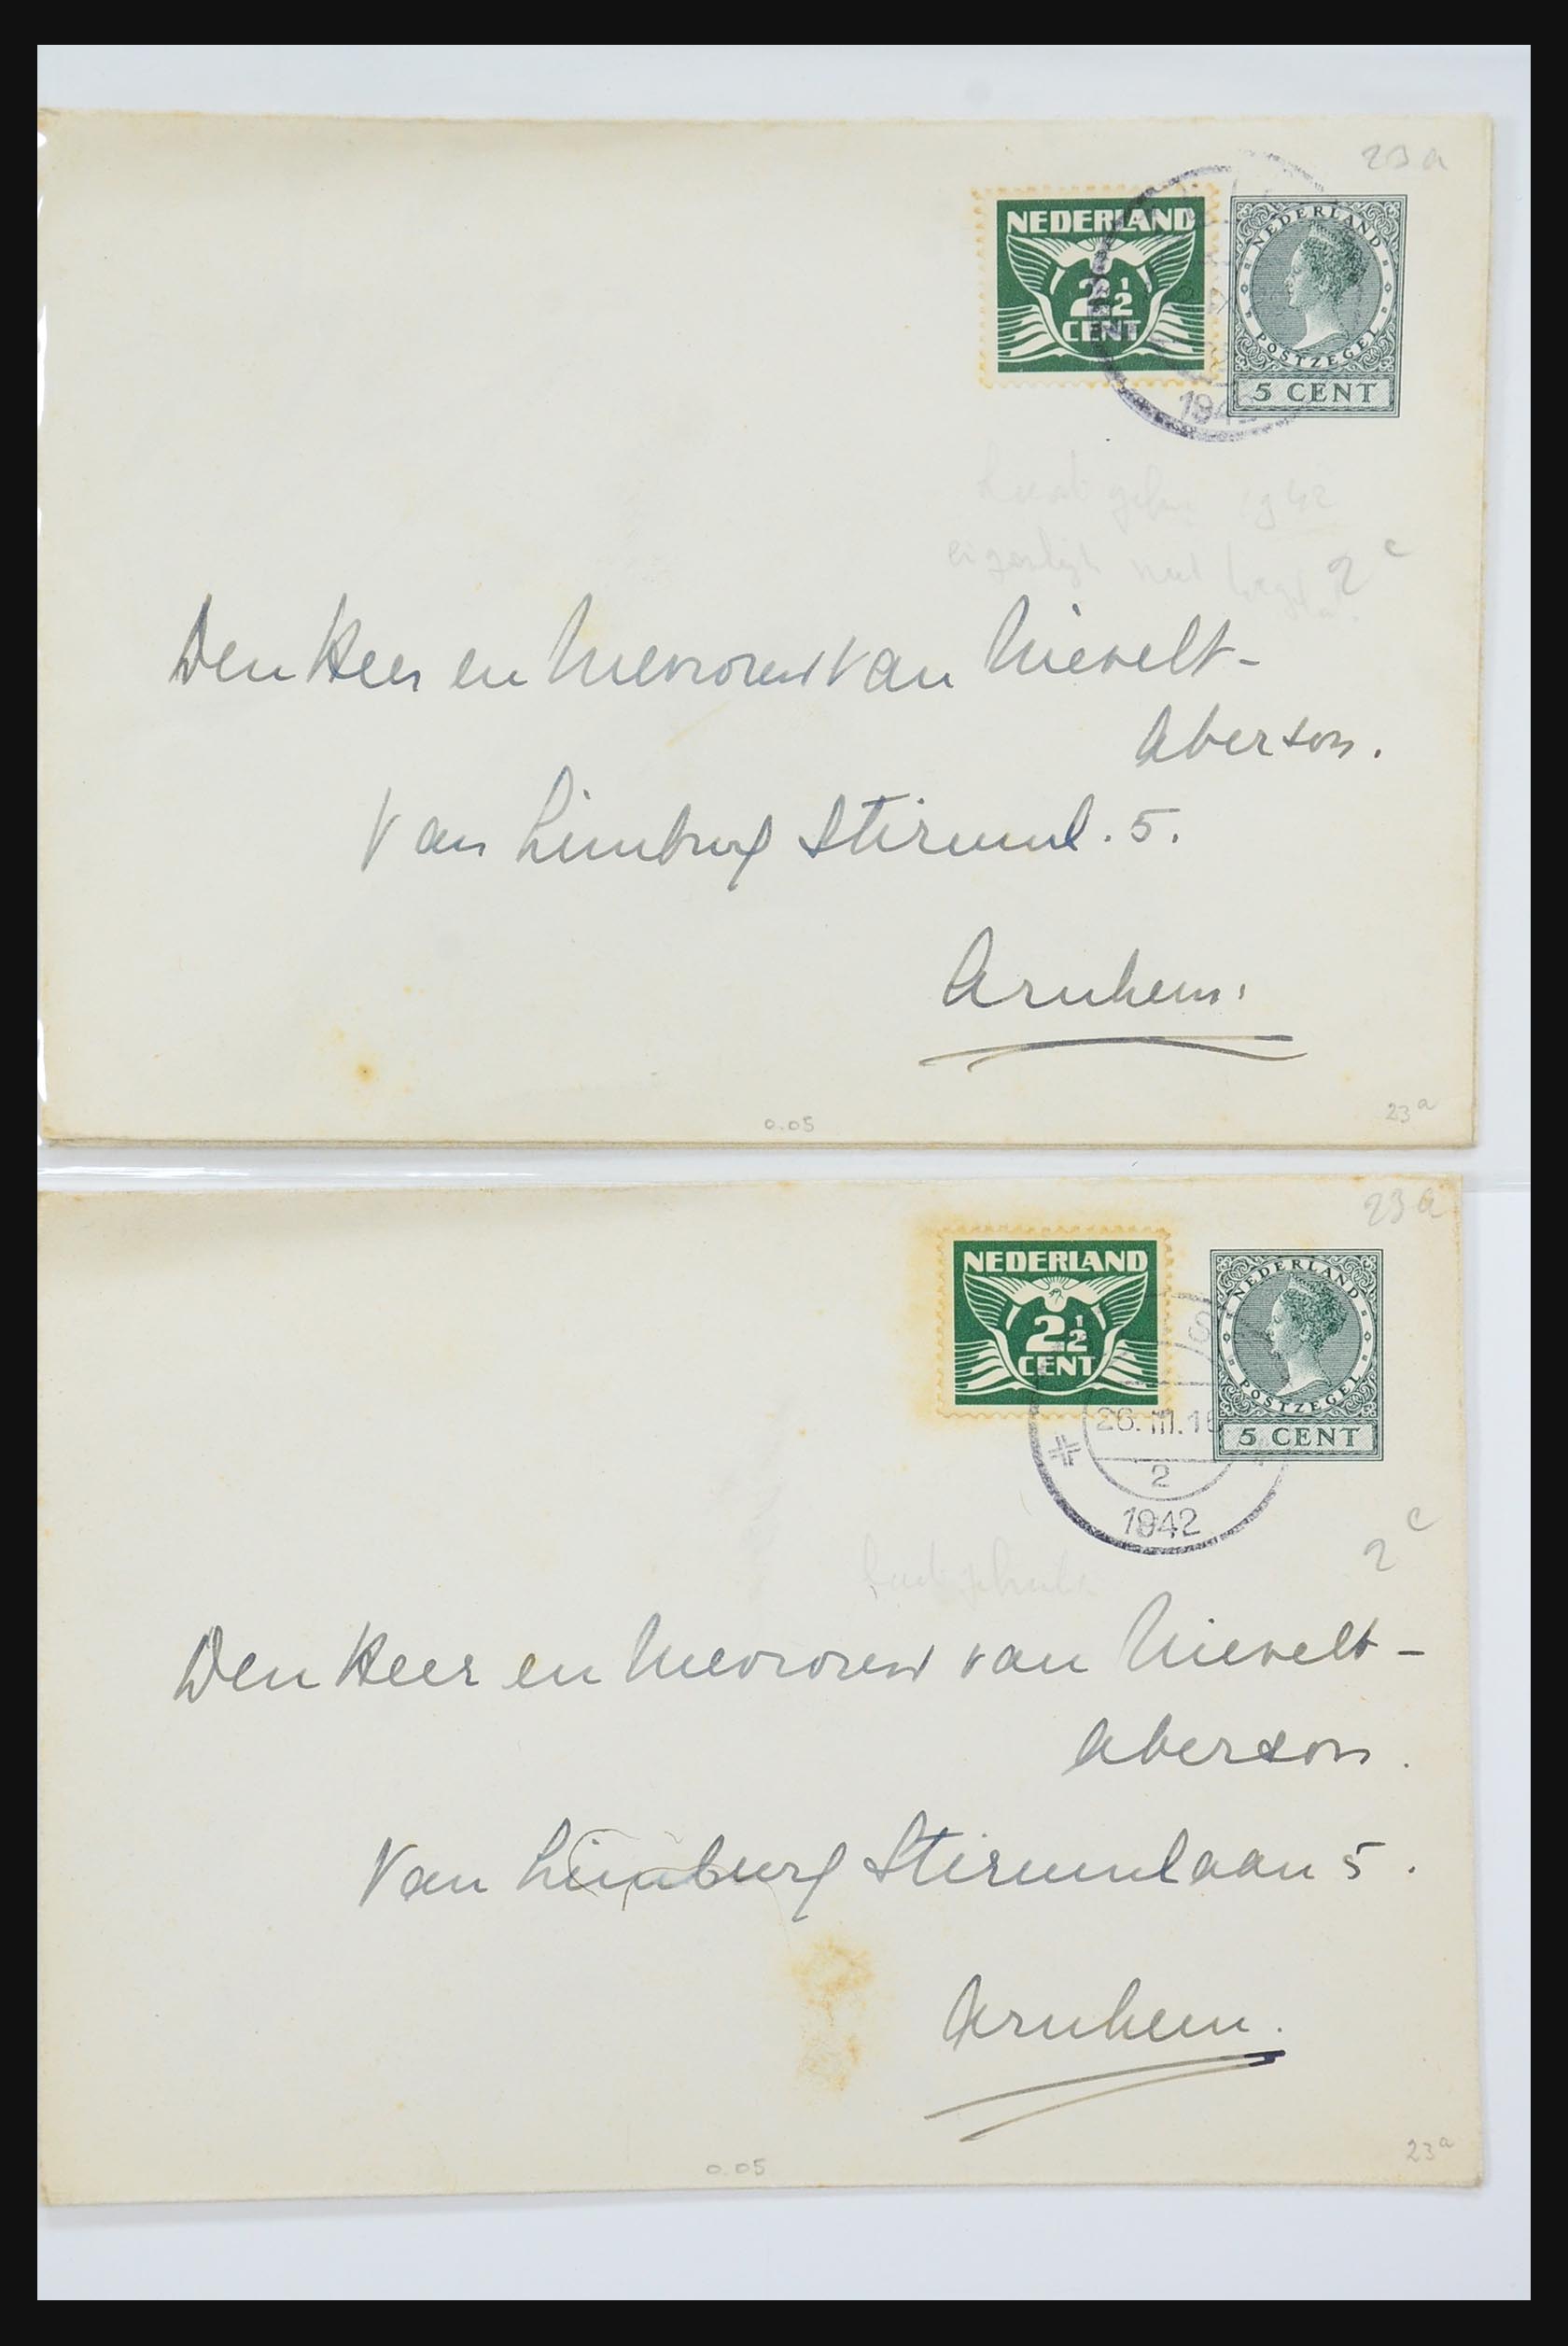 23 a
NEDERLAND
2½
CENT
NEDERLAND
POSTZEGEL
5 CENT
194
1942
2 c
Den Heer en Mevrouw van Nievelt-
Aberson.
Van Limburg Stiruml. 5.
Arnhem.
0.05
23 a
23 a
NEDERLAND
2½
CENT
NEDERLAND
POSTZEGEL
5 CENT
S
26.III.16
2
1942
2 c
Den Heer en Mevrouw van Nievelt-
Aberson.
Van Limburg Stirumlaan 5.
Arnhem.
0.05
23 a